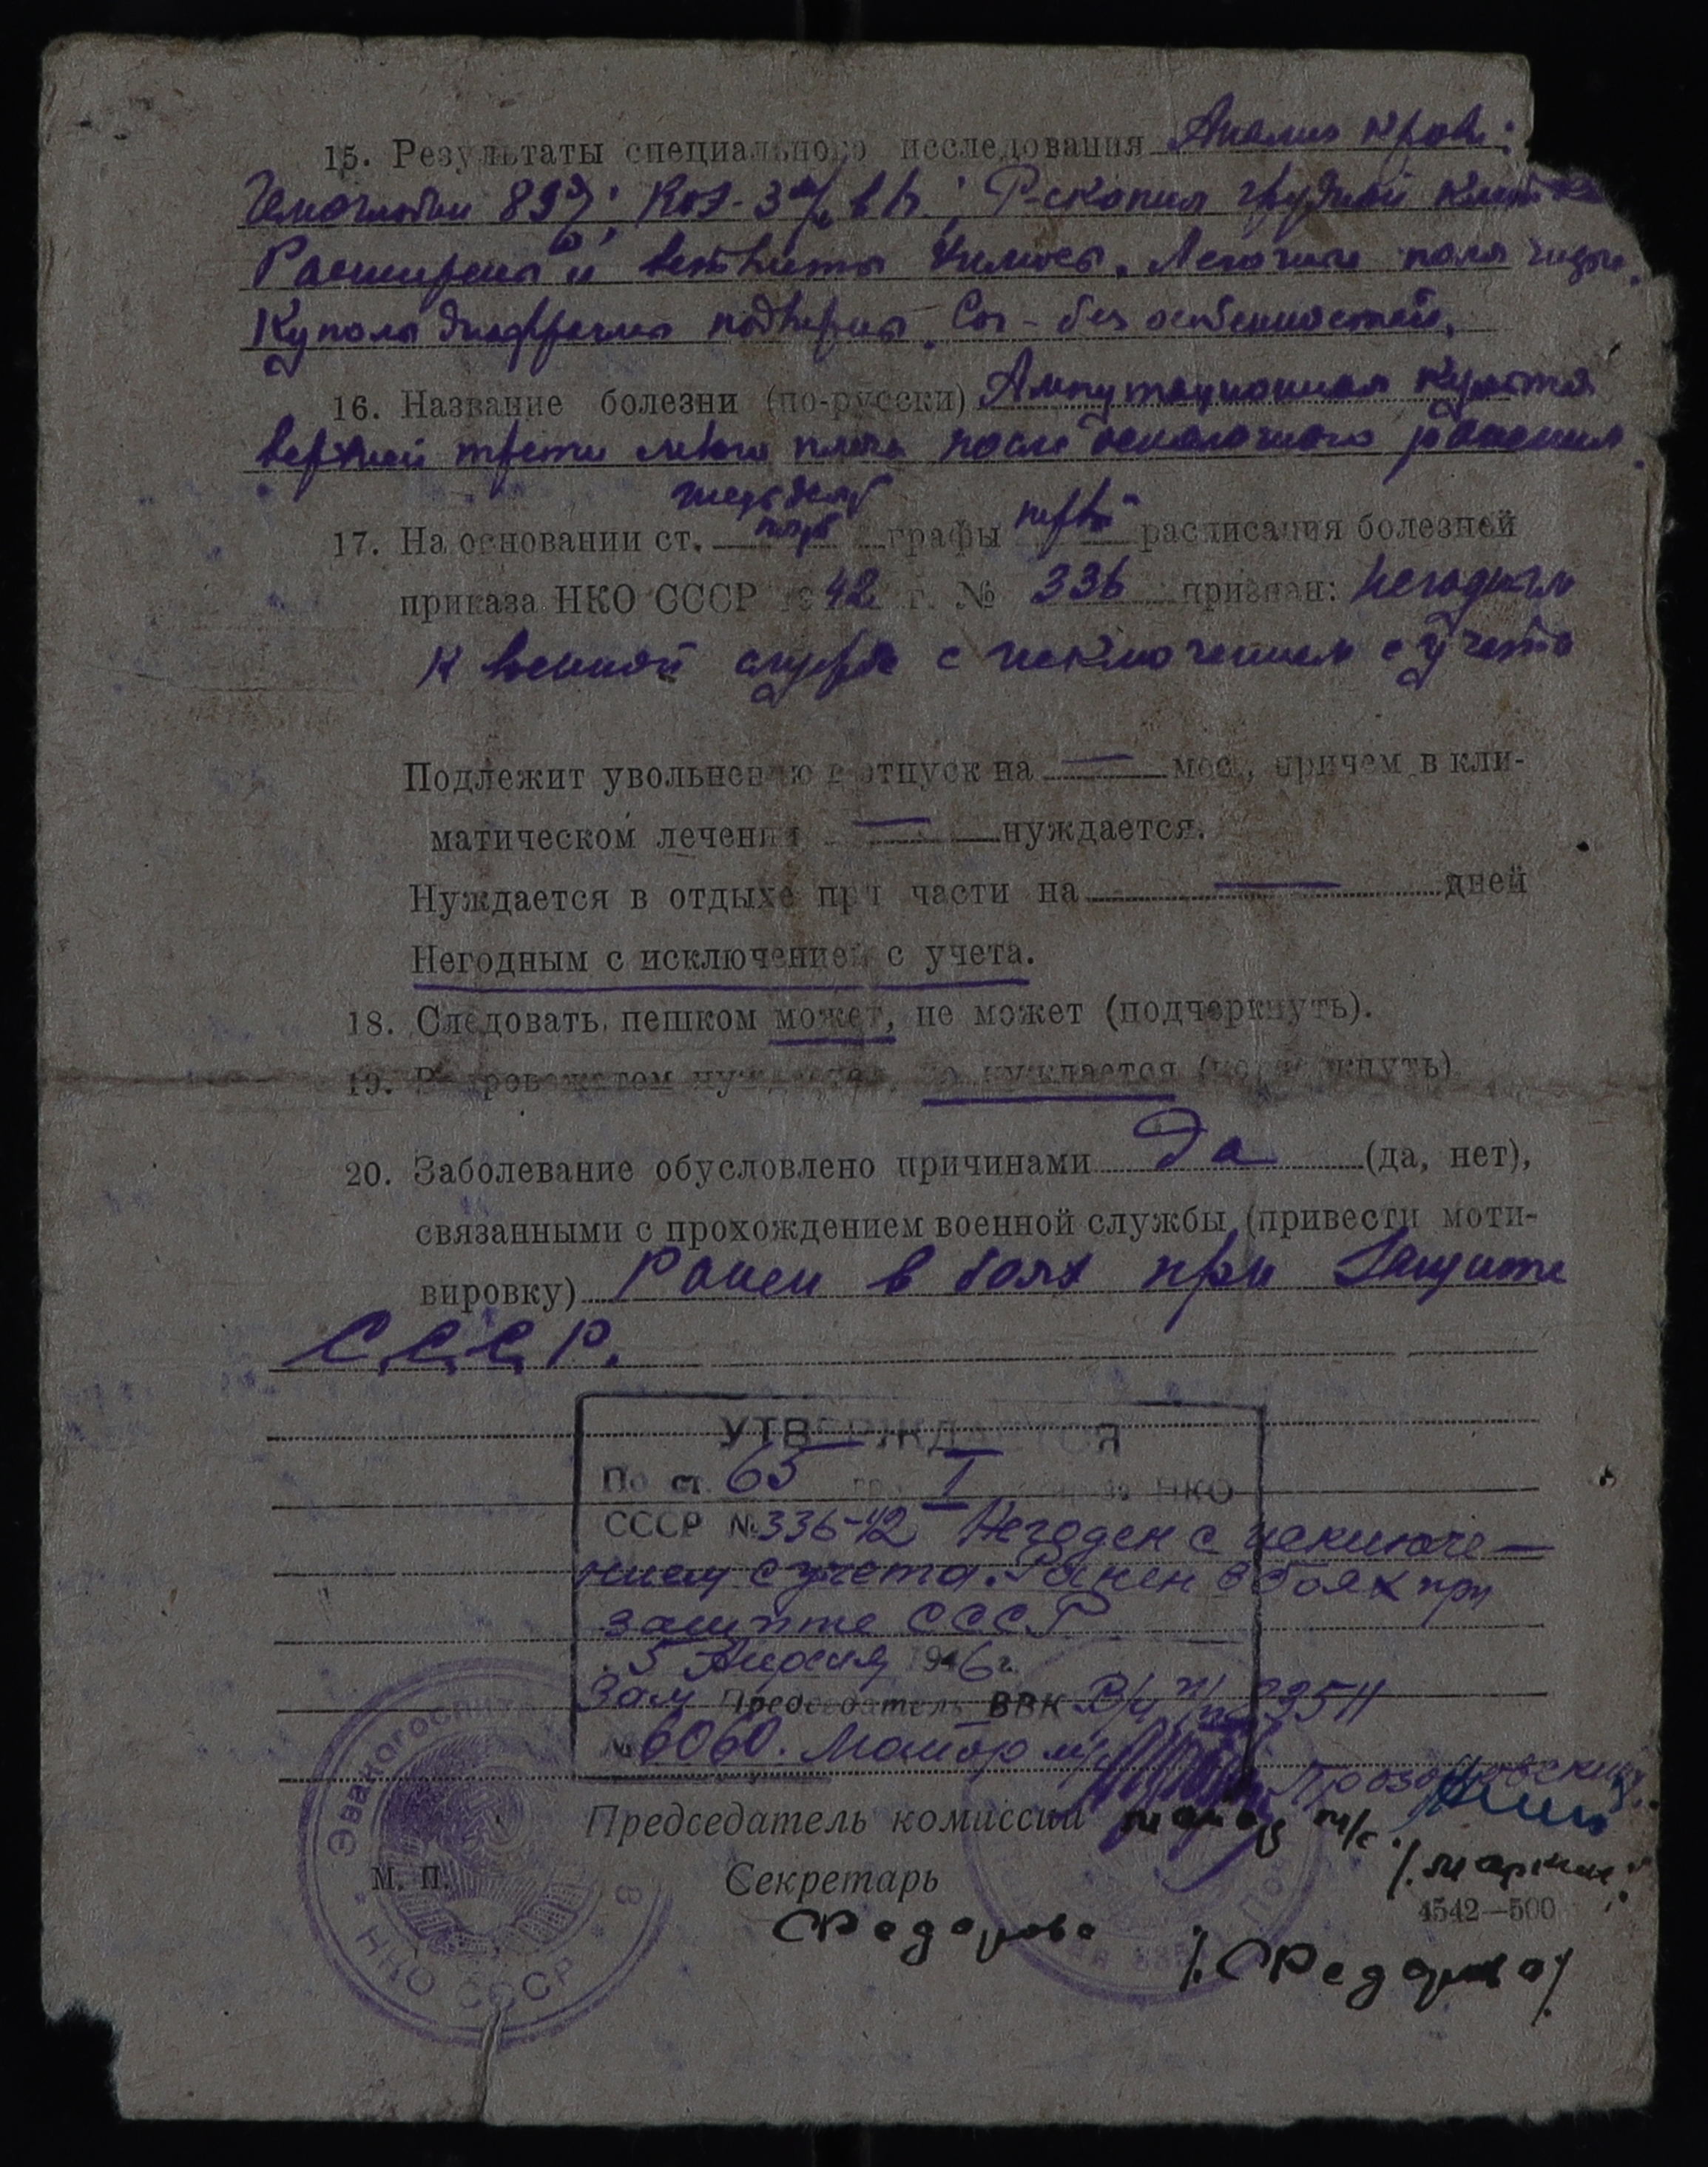 15. Результаты специального исследования Анализ крови:
Гемоглобин 83%; РОЭ-3 м/м в ч.; Р-скопия грудной клетки
Расширены и ветвисты хилюсы. Легочные поля чисты.
Купола диафрагмы подвижны. Cor - без особенностей.
16. Название болезни (по-русски) Ампутационная культя
верхней трети левого плеча после осколочного ранения.
17. На основании ст. шестьдесят пять графы первой расписания болезней
приказа НКО СССР 1942 г. № 336 признан: Негодным
к военной службе с исключением с учета
Подлежит увольнению в отпуск на — мес., причем в кли-
матическом лечении — нуждается.
Нуждается в отдыхе при части на — дней
Негодным с исключением с учета.
18. Следовать пешком может, не может (подчеркнуть).
19. В провожатом нуждается, не нуждается (подчеркнуть)
20. Заболевание обусловлено причинами Да (да, нет),
связанными с прохождением военной службы (привести моти-
вировку) Ранен в боях при защите
С.С.С.Р.
УТВЕРЖДАЕТСЯ
По ст. 65 гр. I приказа НКО
СССР № 336-42 Негоден с исключе-
нием с учета. Ранен в боях при
защите СССР
5 Апреля 1946 г.
Зам Председатель ВВК
№ 6060. Майор м/с
Председатель комиссии майор м/с
М. П.
Секретарь
4542—500
Федорова /Федорова/
Эвакогоспиталь
НКО СССР